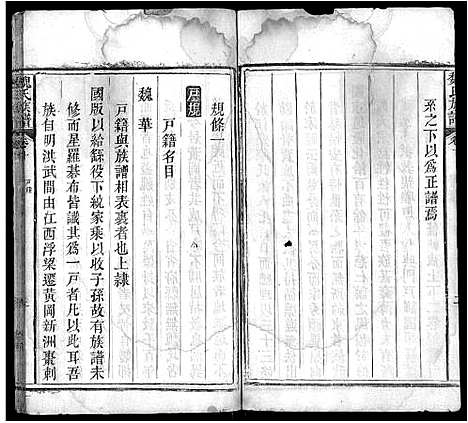 魏氏族譜
系之下以為正譜焉
規條一
戶籍名目
魏華
戶籍與族譜相表裏者也上隸
國版以給餘役下統家乘以收子孫故有族譜未
修而星羅棊布皆識其為一戶者凡以此耳吾
族自明洪武間由江西浮梁遷黃岡新洲棗刺
魏氏族譜